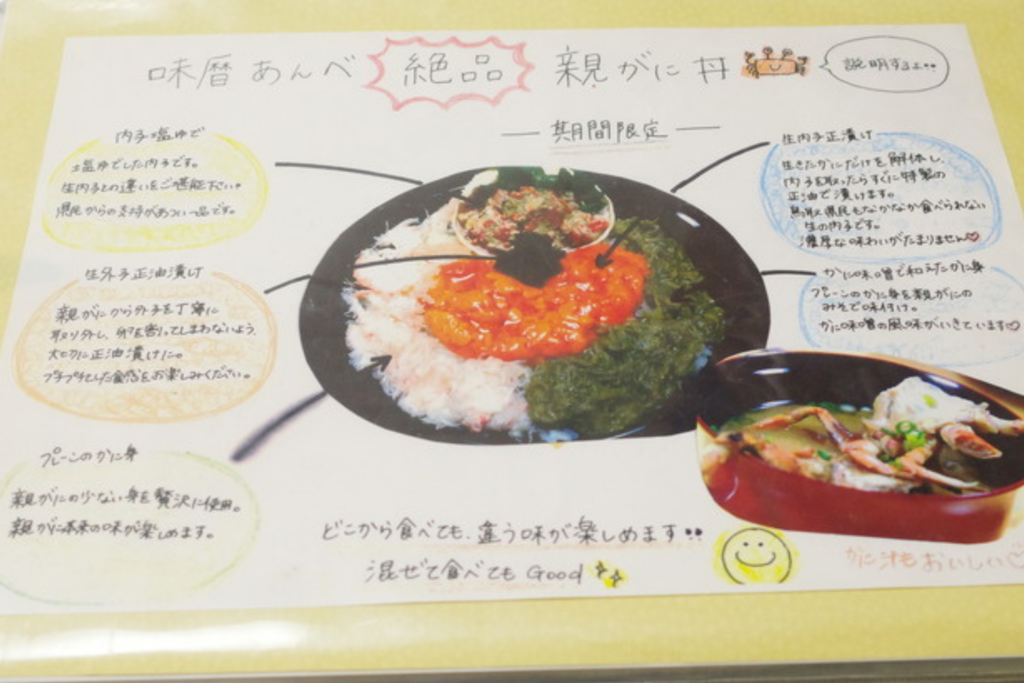 味暦あんべ 絶品 親がに丼
説明するよ••
― 期間限定 ―
内子塩ゆで
塩ゆでした内子です。
生内子との違いをご堪能下さい。
県民からの支持があつい一品です。
生外子正油漬け
親がにから外子を丁寧に
取り外し、卵を潰してしまわないよう、
大切に正油漬けに。
プチプチした食感をお楽しみください。
プレーンのかに身
親がにの少ない身を贅沢に使用。
親がに本来の味が楽しめます。
生内子正漬け
生きたかにだけを解体し、
内子を取ったらすぐに特製の
正油で漬けます。
鳥取県民もなかなか食べられない
生の内子です。
濃厚な味わいがたまりません♡
かに味噌で和えたかに身
プレーンのかに身を親がにの
みそで味付け。
かに味噌の風味がいきています♡
どこから食べても、違う味が楽しめます••
混ぜて食べてもGood
かに汁もおいしい♡